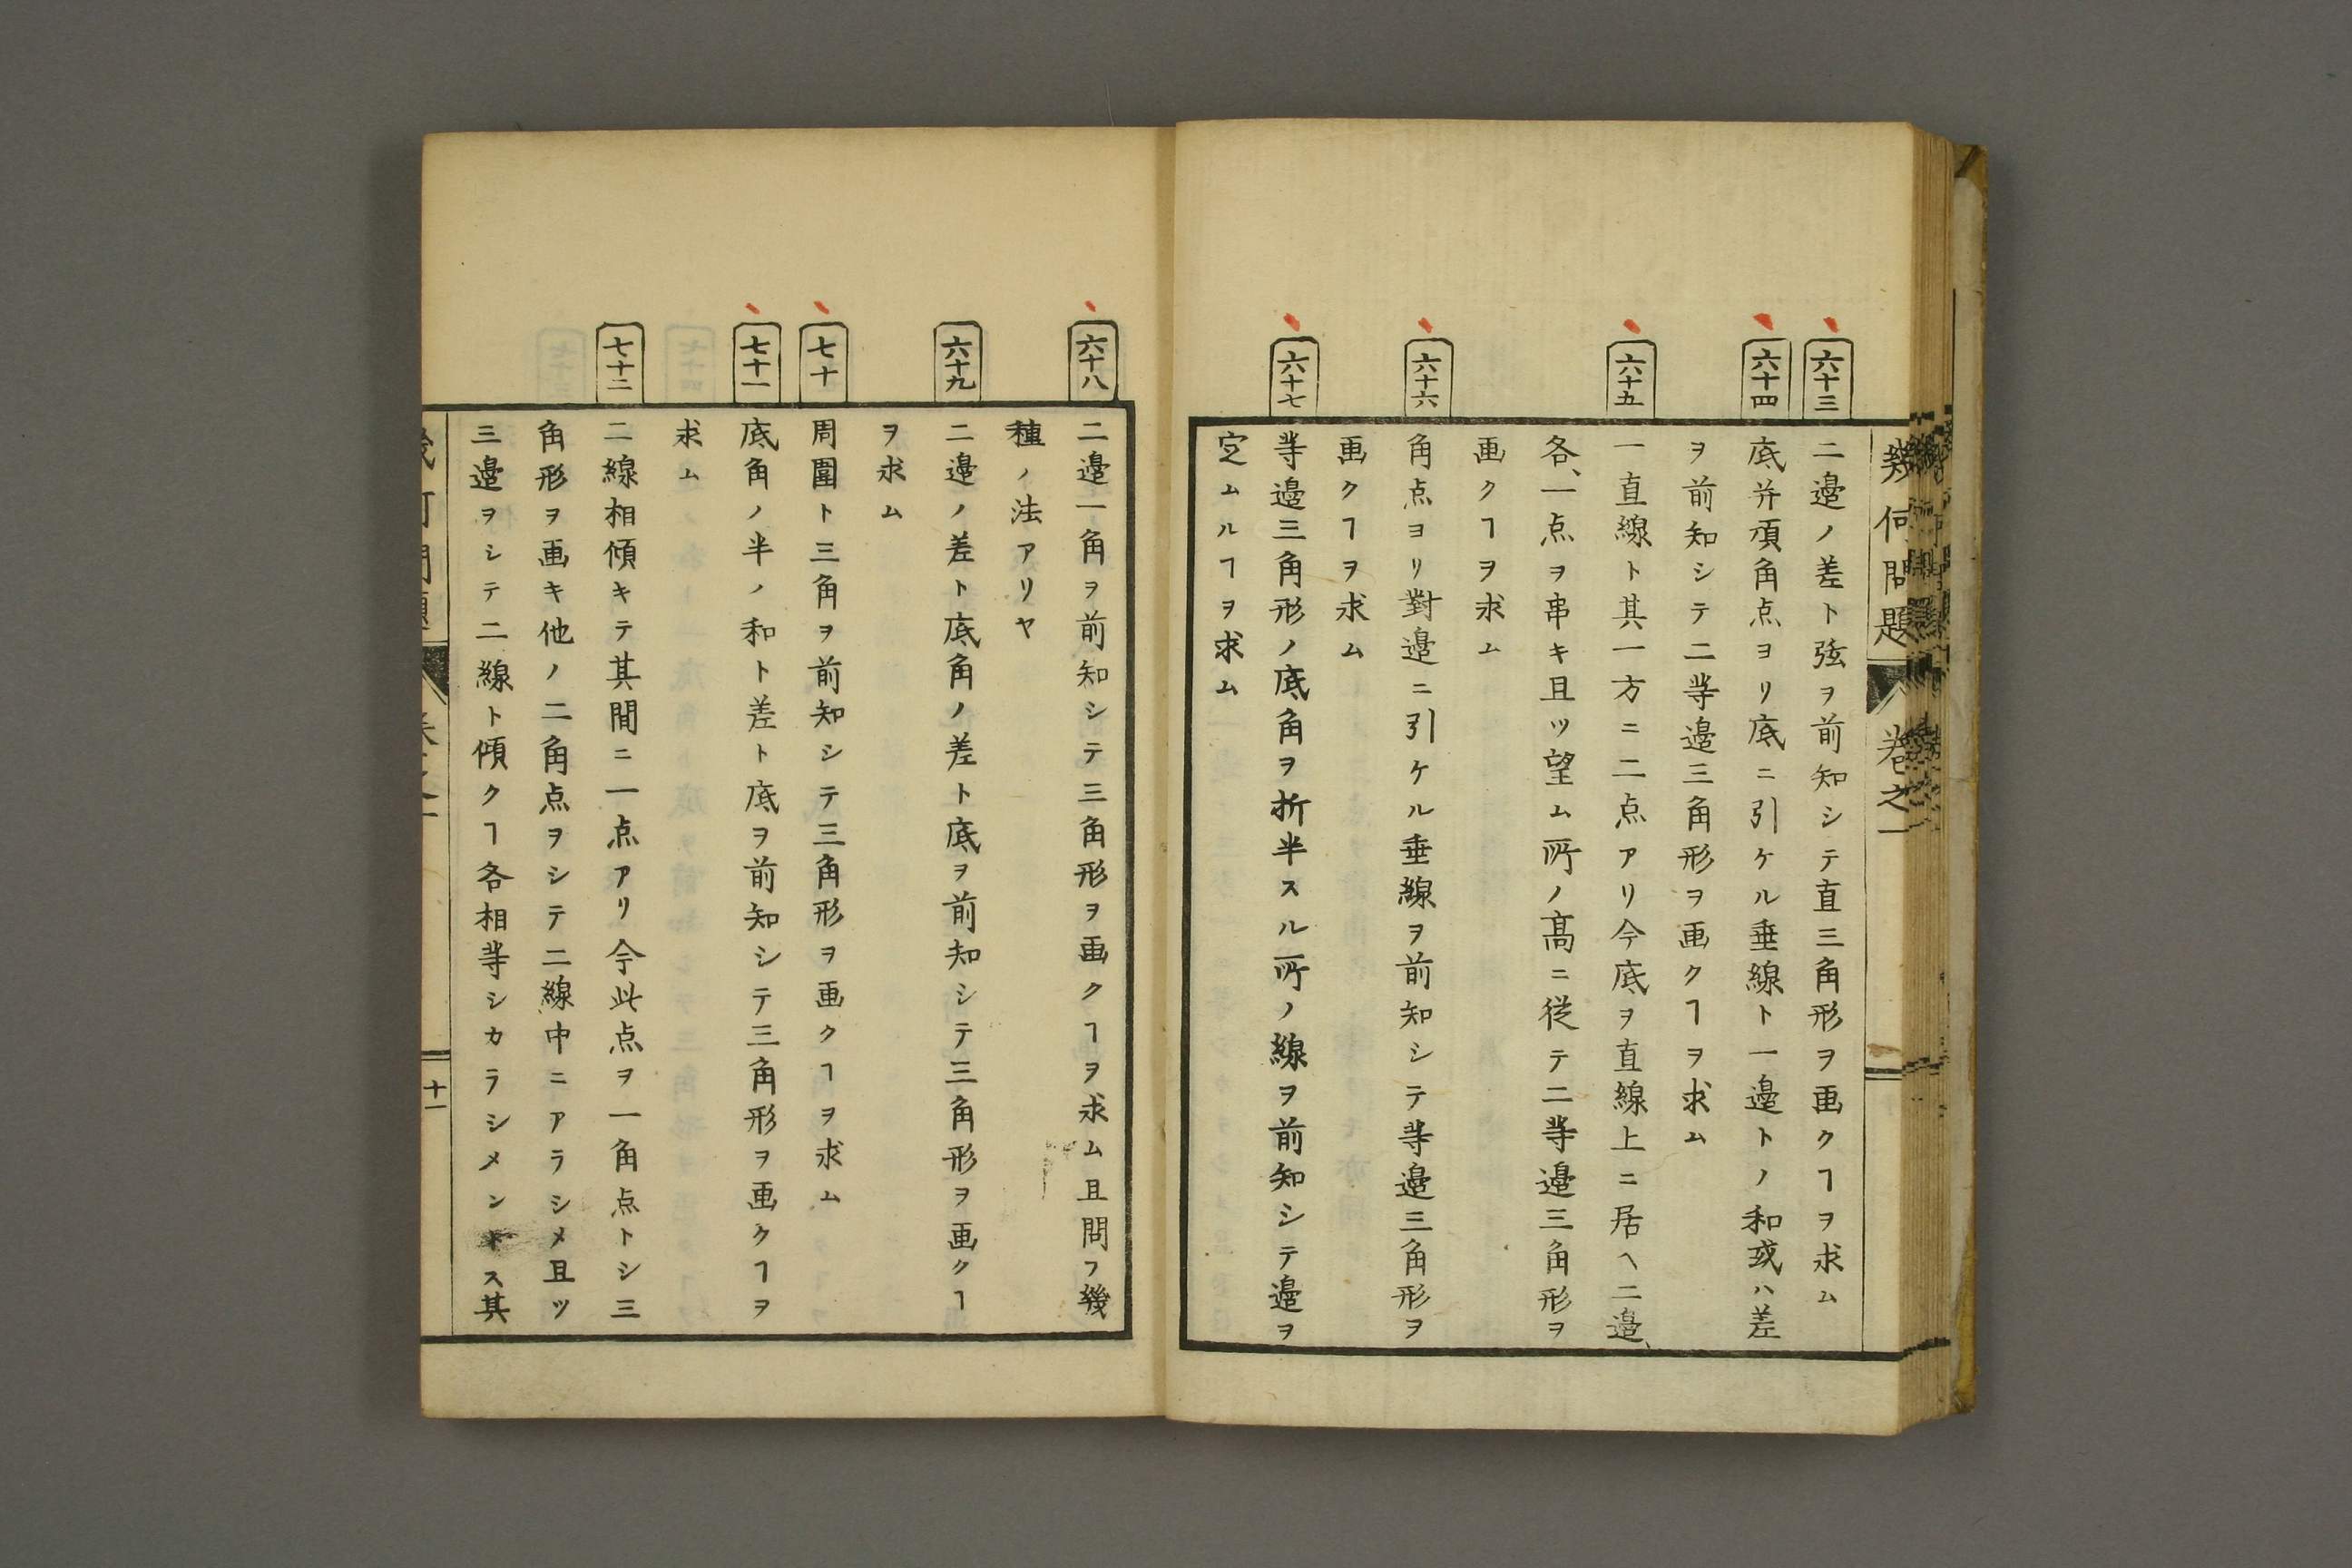 幾何問題 卷之一
六十三
二邉ノ差ト弦ヲ前知シテ直三角形ヲ画クヿヲ求ム
六十四
底并頂角点ヨリ底ニ引ケル垂線ト一邉トノ和或ハ差
ヲ前知シテ二等邉三角形ヲ画クヿヲ求ム
六十五
一直線ト其一方ニ二点アリ今底ヲ直線上ニ居ヘ二邉、
各、一点ヲ串キ且ツ望ム所ノ髙ニ従テ二等邉三角形ヲ
画クヿヲ求ム
六十六
角点ヨリ對邉ニ引ケル垂線ヲ前知シテ等邉三角形ヲ
画クヿヲ求ム
六十七
等邉三角形ノ底角ヲ折半スル所ノ線ヲ前知シテ邉ヲ
定ムルヿヲ求ム
六十八
二邉一角ヲ前知シテ三角形ヲ画クヿヲ求ム且問フ幾
種ノ法アリヤ
六十九
二邉ノ差ト底角ノ差ト底ヲ前知シテ三角形ヲ画クヿ
ヲ求ム
七十
周圍ト三角ヲ前知シテ三角形ヲ画クヿヲ求ム
七十一
底角ノ半ノ和ト差ト底ヲ前知シテ三角形ヲ画クヿヲ
求ム
七十二
二線相傾キテ其間ニ一点アリ今此点ヲ一角点トシ三
角形ヲ画キ他ノ二角点ヲシテ二線中ニアラシメ且ツ
三邉ヲシテ二線ト傾クヿ各相等シカラシメントス其
十一